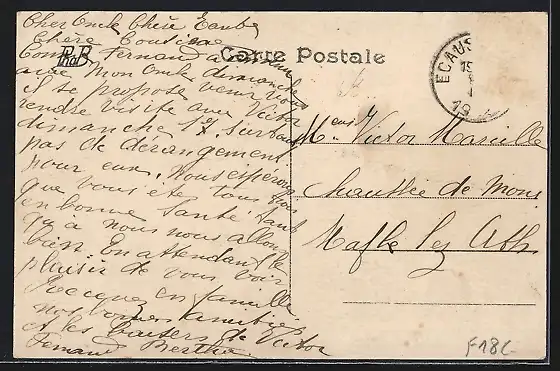 Cher Oncle Chère Tante
Chère Cousine
Carte Postale
PhoB
Comme Fernand a
avec mon Oncle dimanche
il se propose venir vous
rendre visite avec Victor
dimanche 1x. Surtout
pas de dérangement
pour eux. Nous espérons
que vous ête tous
en bonne santé. Quant
qu'a nous nous allons
bien. En attendant le
plaisir de vous voir
Recevez en famille
nos bonnes amitiés
et les baisers de Victor
Fernand Bertha
ECAUS
19
Mr Victor Marcille
Chaussée de Mons
Maffle lez Ath
F18C